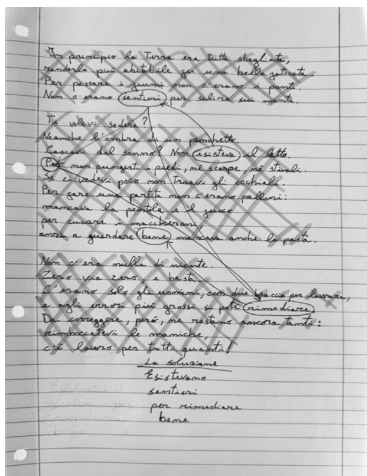 In principio la Terra era tutta sbagliata,
renderla più abitabile fu una bella faticata.
Per passare i fiumi non c'erano i ponti.
Non c'erano sentieri per salire sui monti.
Ti volevi sedere?
Neanche l'ombra di un panchetto.
Cascavi dal sonno? Non esisteva il letto.
Per non pungerti i piedi, né scarpe, né stivali.
Se ci vedevi poco non trovavi gli occhiali.
Per fare una partita non c'erano palloni:
mancava la pentola e il fuoco
per cuocere i maccheroni
anzi a guardare bene mancava anche la pasta.
Non c'era nulla di niente.
Zero via zero, e basta.
C'erano solo gli uomini, con due braccia per lavorare,
e agli errori più grossi si poté rimediare
Da correggere, però, ne restano ancora tanti:
rimboccatevi le maniche,
c'è lavoro per tutti quanti!
La soluzione
Esistevano
sentieri
per rimediare
bene